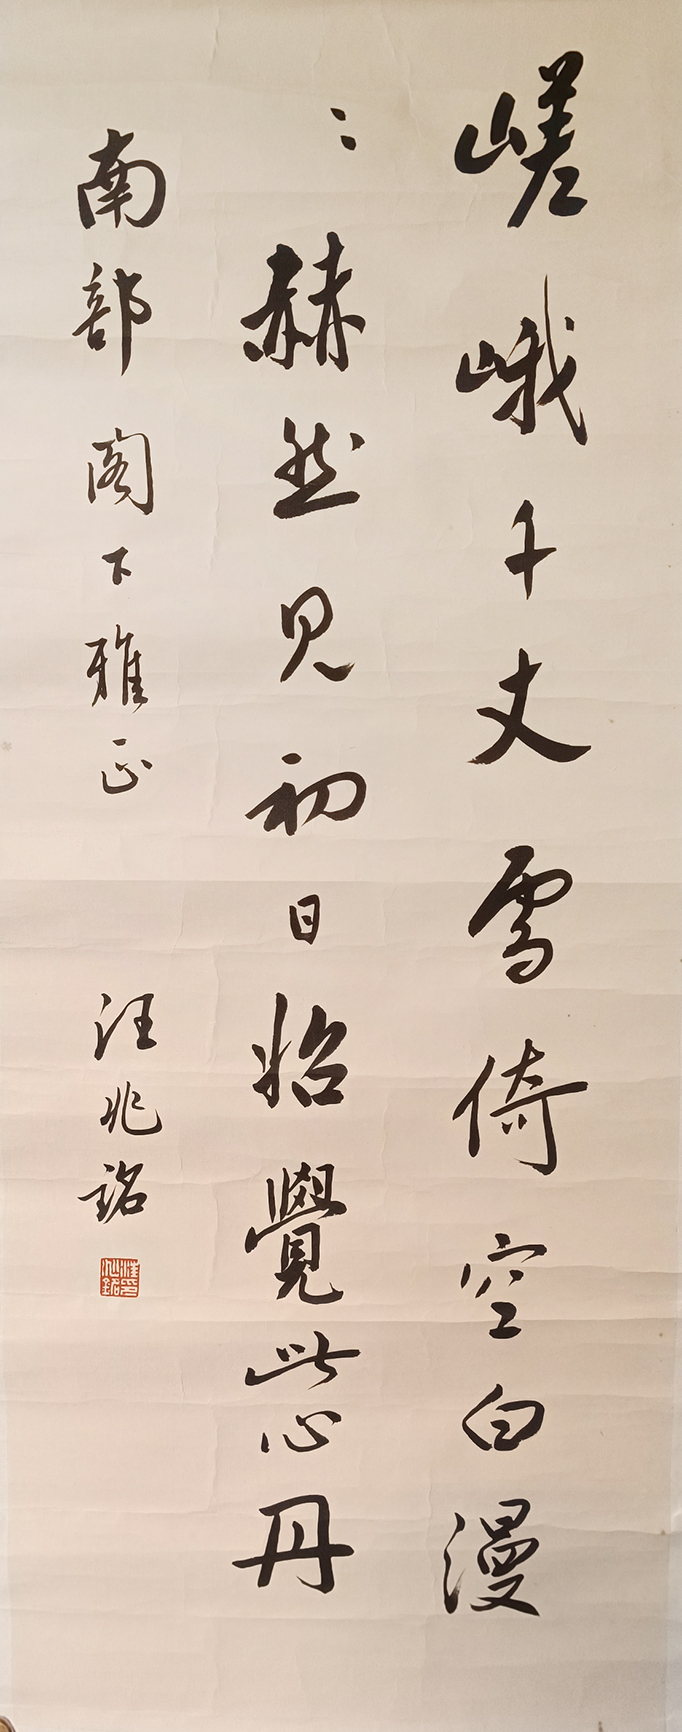 嵯峨千丈雪倚空白漫
〻赫然見初日始覺此心丹
南部 閣下雅正 汪兆銘
汪兆銘印